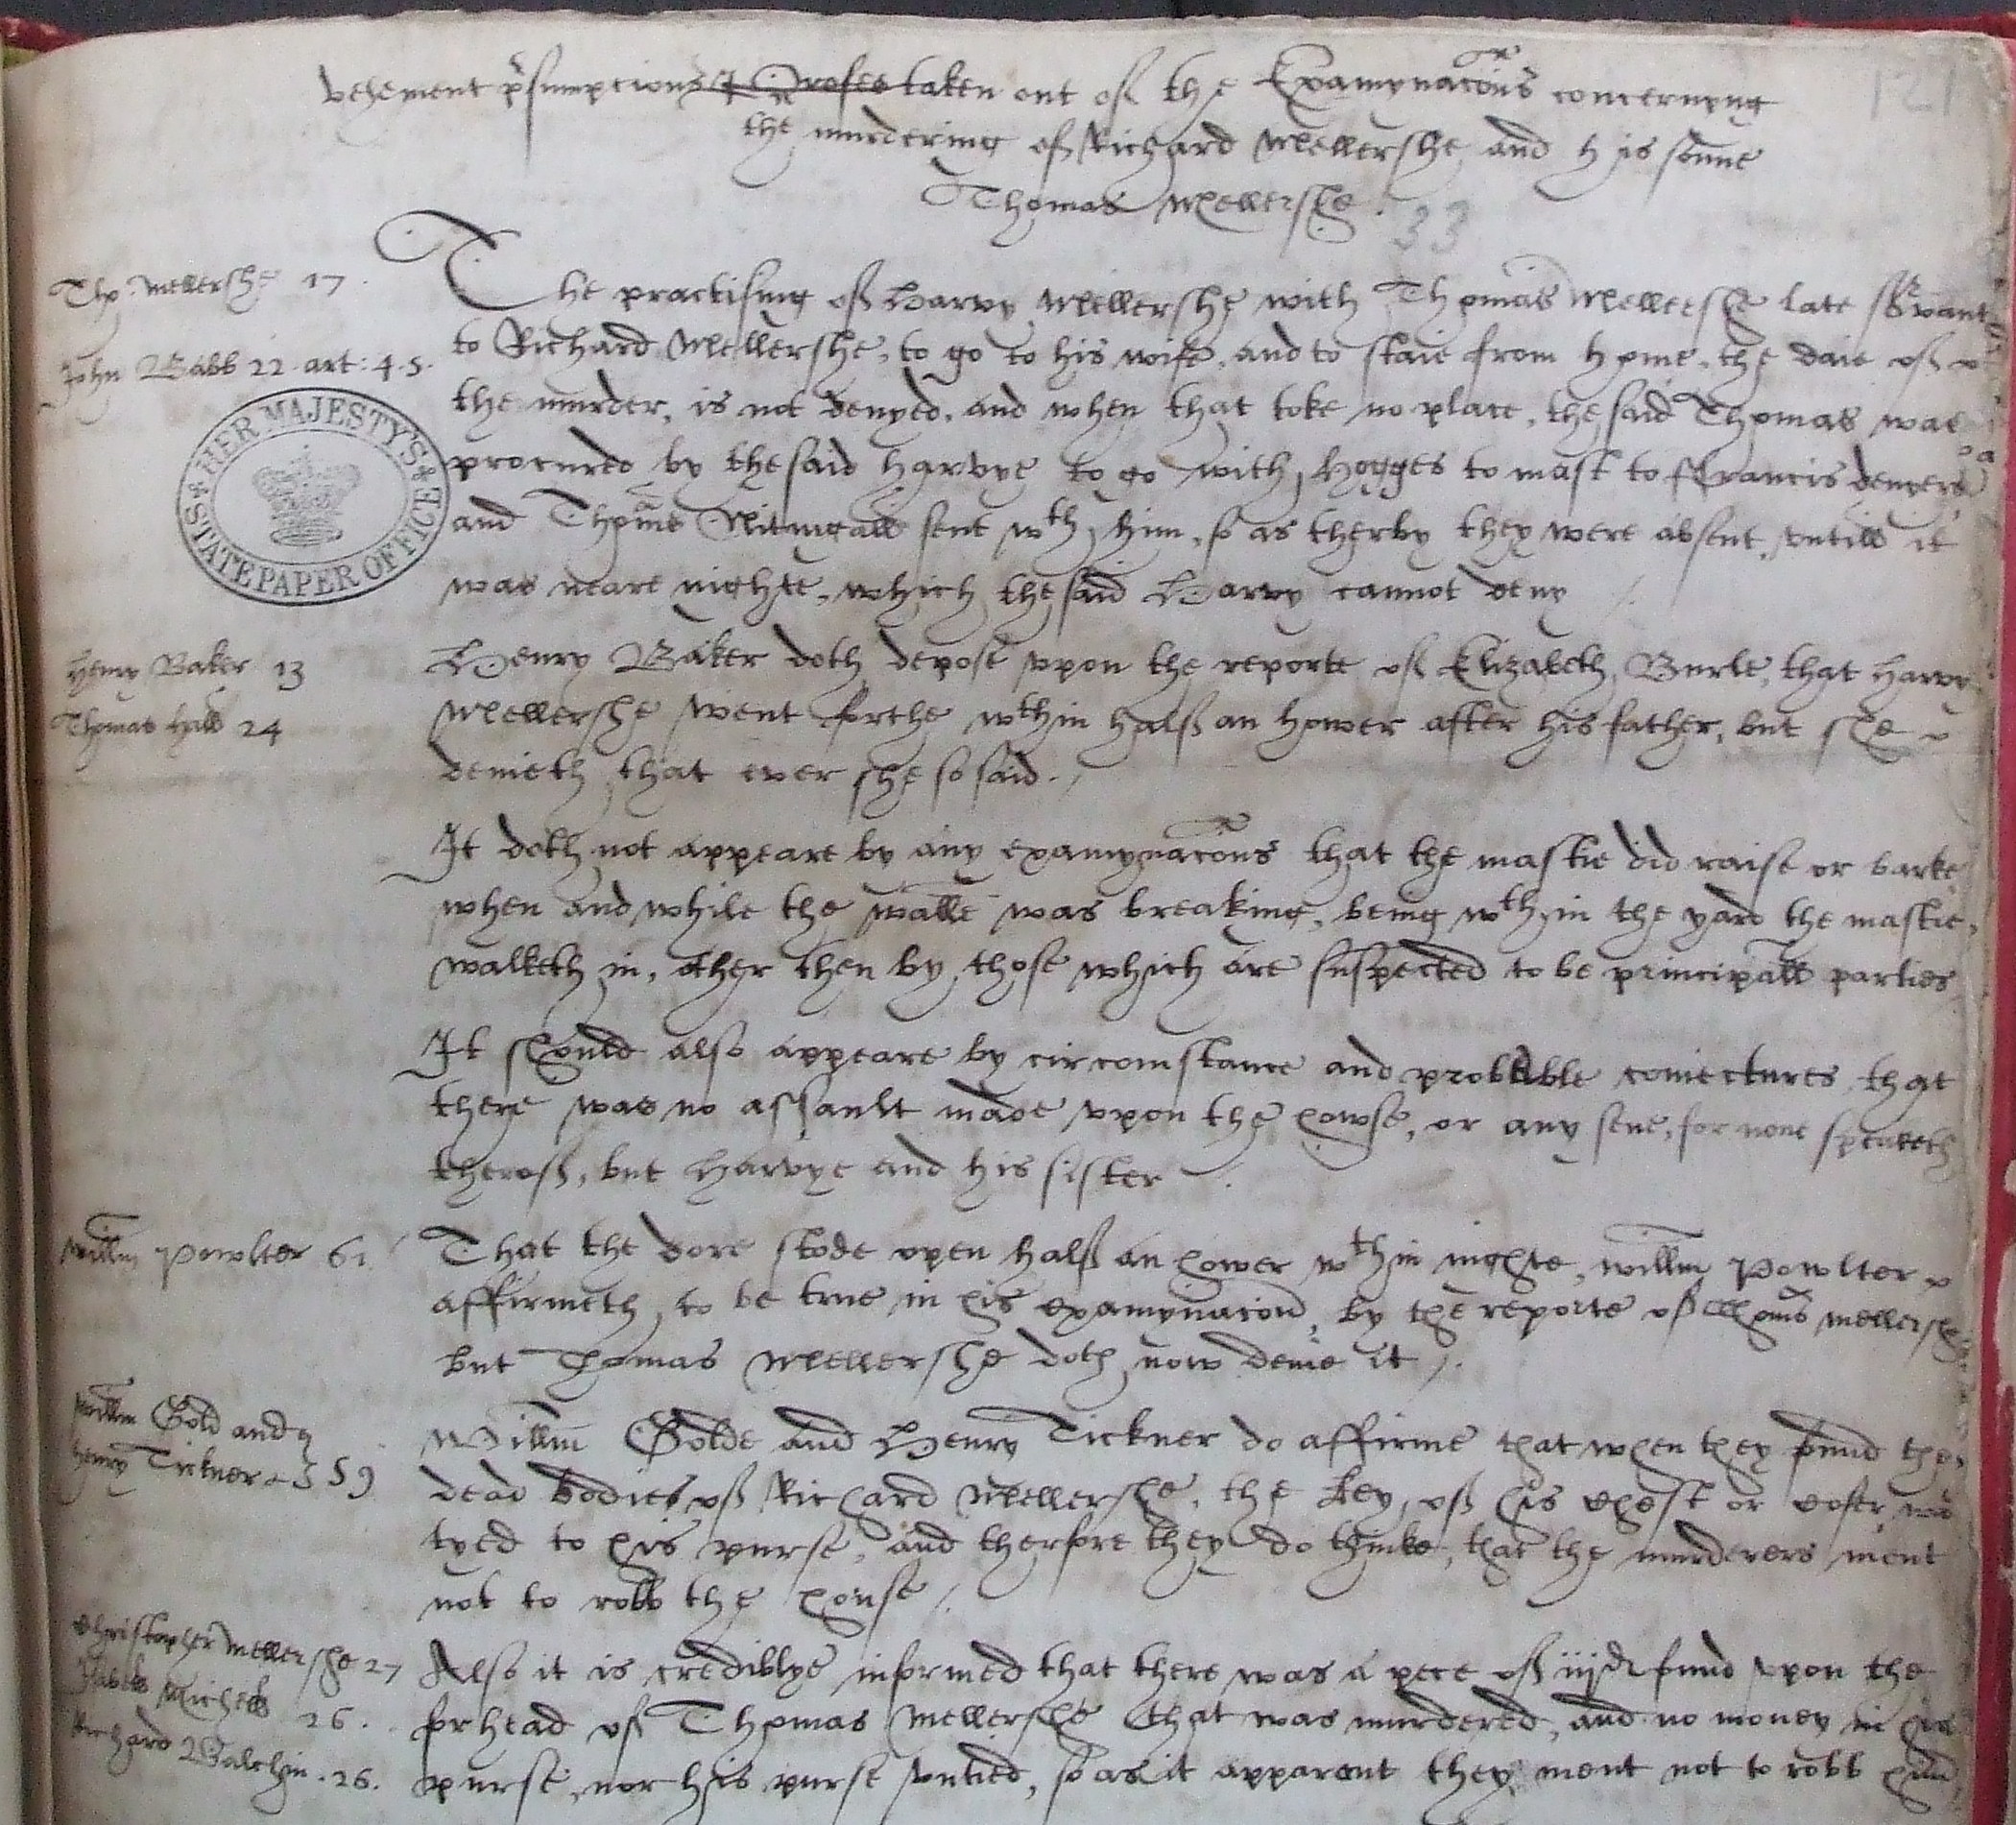 vehement psumptions & Profes taken out of the Examynacons concernyng
the murdering of Richard Mellershe and his sonne
Thomas Mellershe.
121
33
Tho. Mellershe 17.
John Babb 22. art: 4. 5.
The practising of Harvy Mellershe with Thomas Mellershe late srvant
to Richard Mellershe, to go to his wife, and to staie from home, the daie of
the murder, is not denyed, and when that toke no place, the said Thomas was
procured by the said Harvye to go with Hogges to mast to Francis
and Thome sent wth him, so as therby they were absent, untill it
was neare nighte, which the said Harvy cannot deny
HER MAJESTY'S STATE PAPER OFFICE
Henry Baker 13
Thomas Hall 24
Henry Baker doth depose upon the reporte of Elizabeth Burle, that Harvy
Mellershe went forthe wthin half an hower after his father, but she
denieth that ever she so said.
It doth not appeare by any examynacons that the mastie did raise or barke
when and while the walle was breaking, being wthin the yard the mastie
walketh in, other then by those which are suspected to be principall parties
It should also appeare by circomstance and probable coniectures, that
there was no assault made upon the howse, or any sene, for none speaketh
therof, but Harvye and his sister.
Willm Powlter 61
That the dore stode open half an hower wthin nighte, willm Powlter
affirmeth to be true in his examynacon, by the reporte of Thoms Mellershe
but Thomas Mellershe doth now denie it.
Willm Gold and
Henry Tickner 59
Willm Golde and Henry Tickner do affirme that when they found the
dead bodies of Richard Mellershe, the key of his chest or cofer, was
tyed to his purse, and therfore they do thinke, that the murderers ment
not to robb the house.
Christopher Mellershe 27
Isabell Michell 26.
Richard Balchin. 26.
Also it is crediblye informed that there was a pece of iijd found upon the
forhead of Thomas Mellershe that was murdered, and no money in his
purse, nor his purse untied, so as it apparent they ment not to robb him